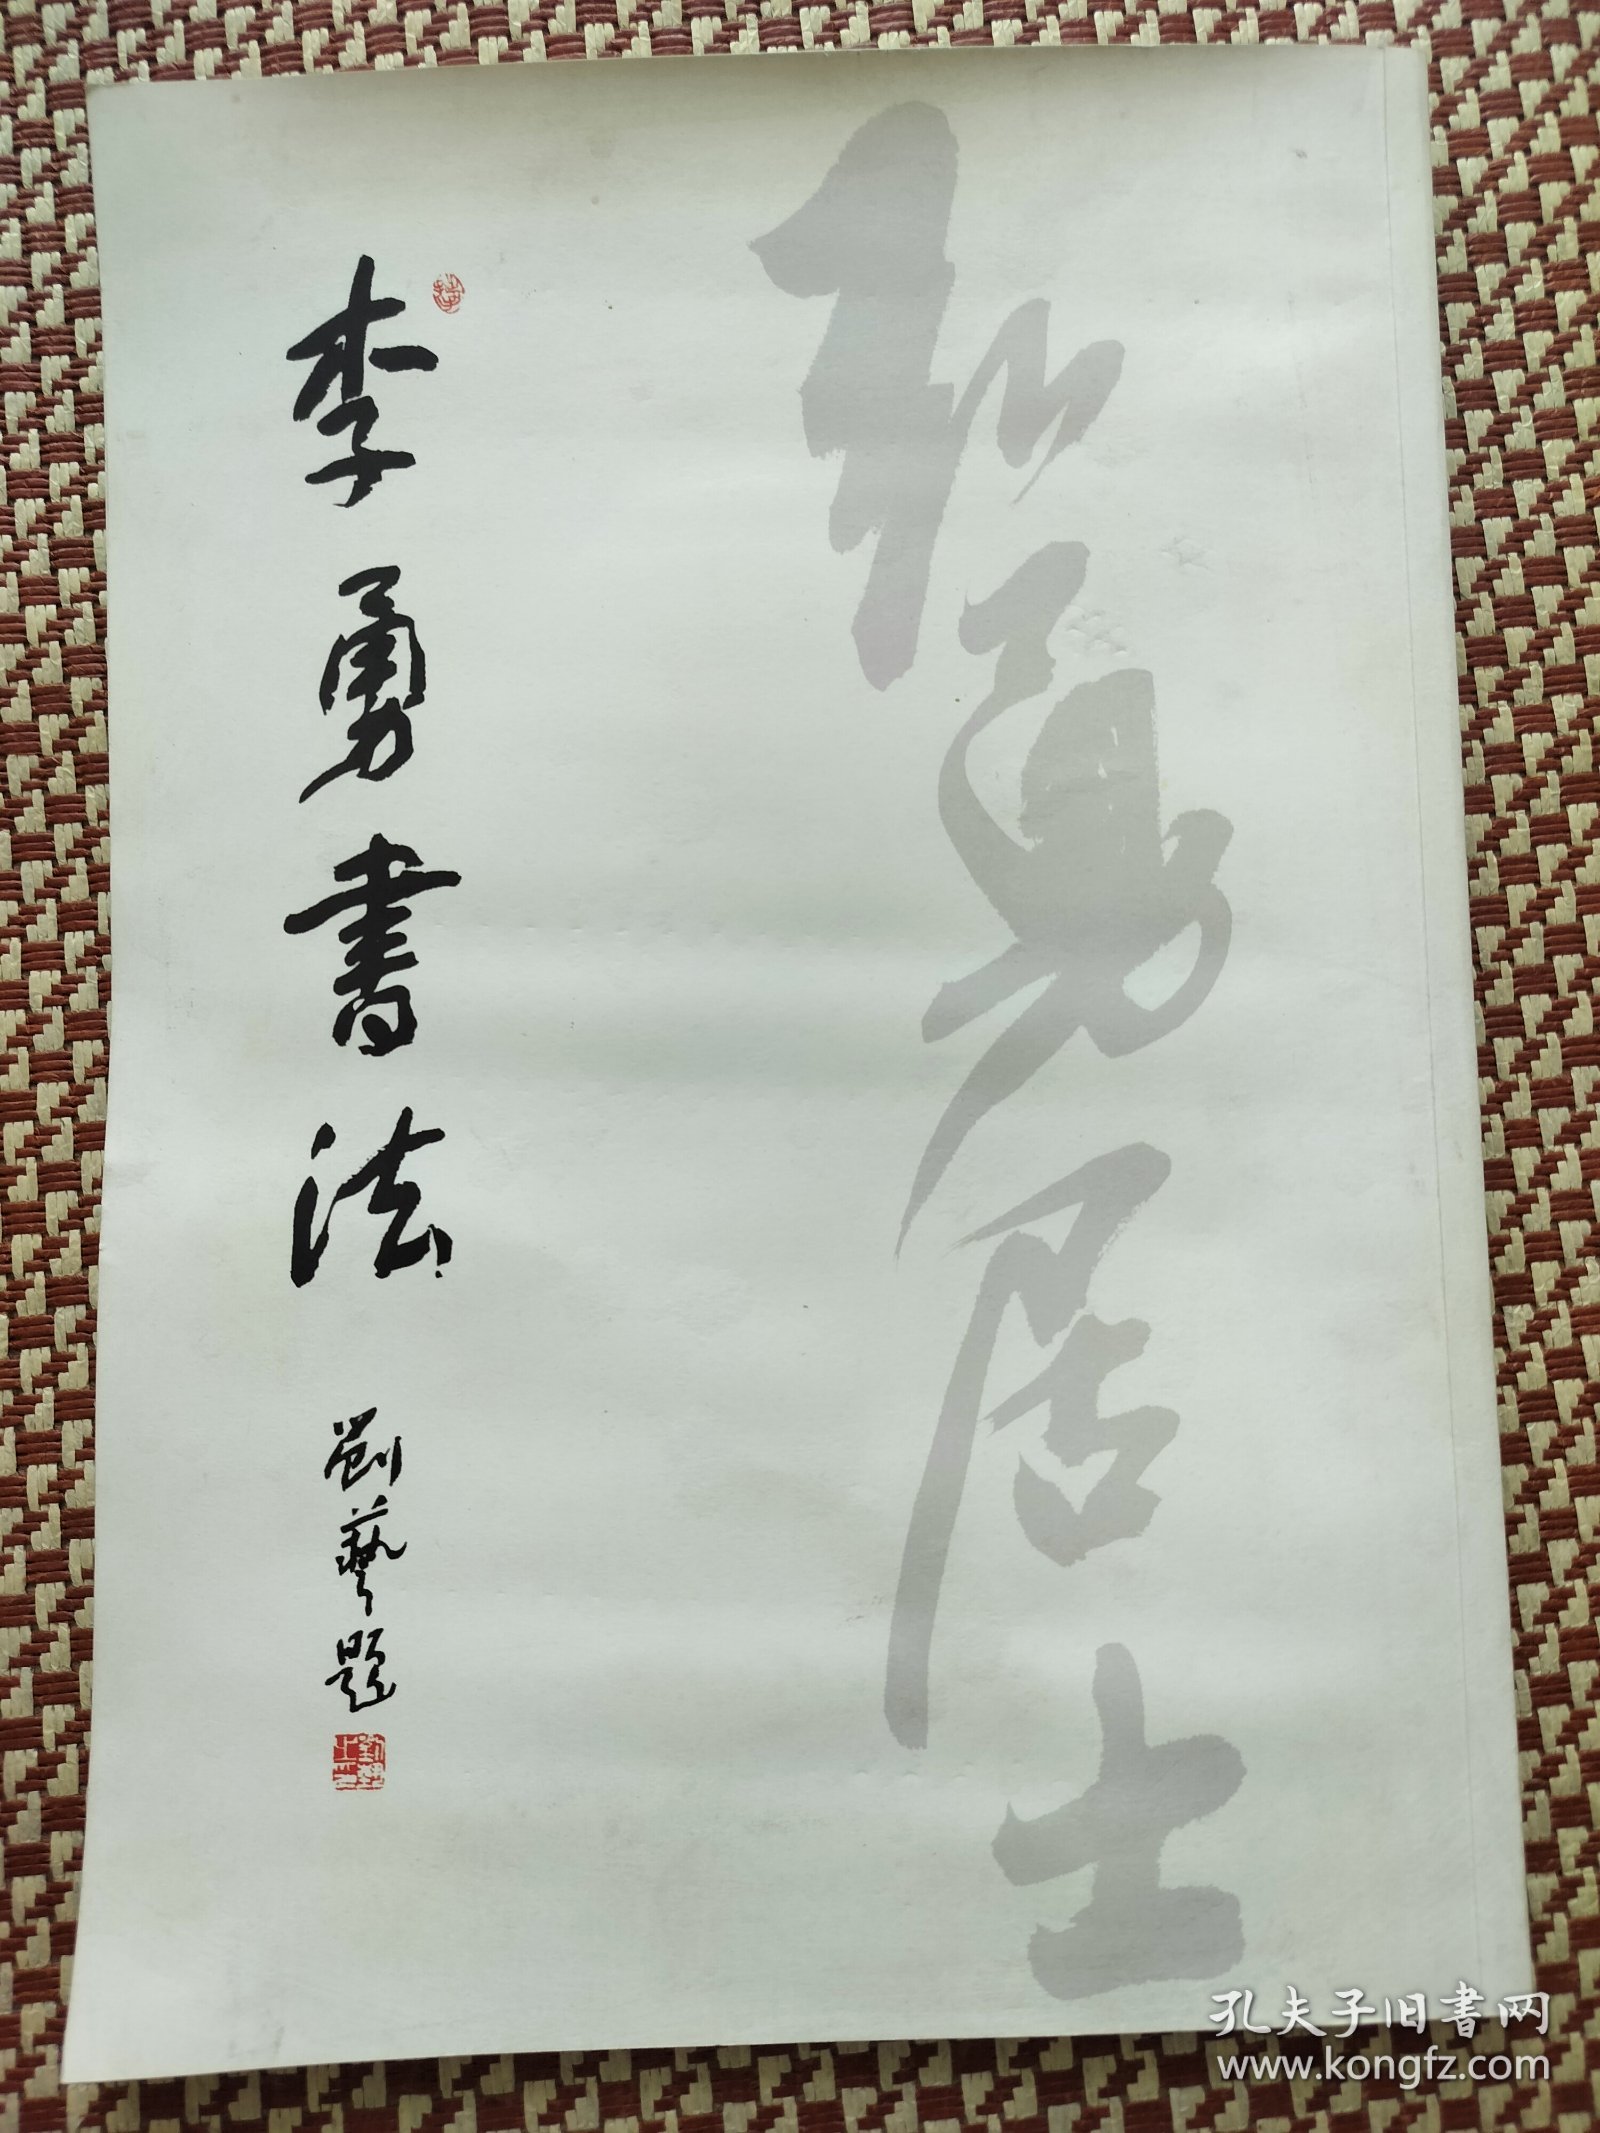 弘勇居士
李勇書法
劉藝題
孔夫子旧书网
www.kongfz.com